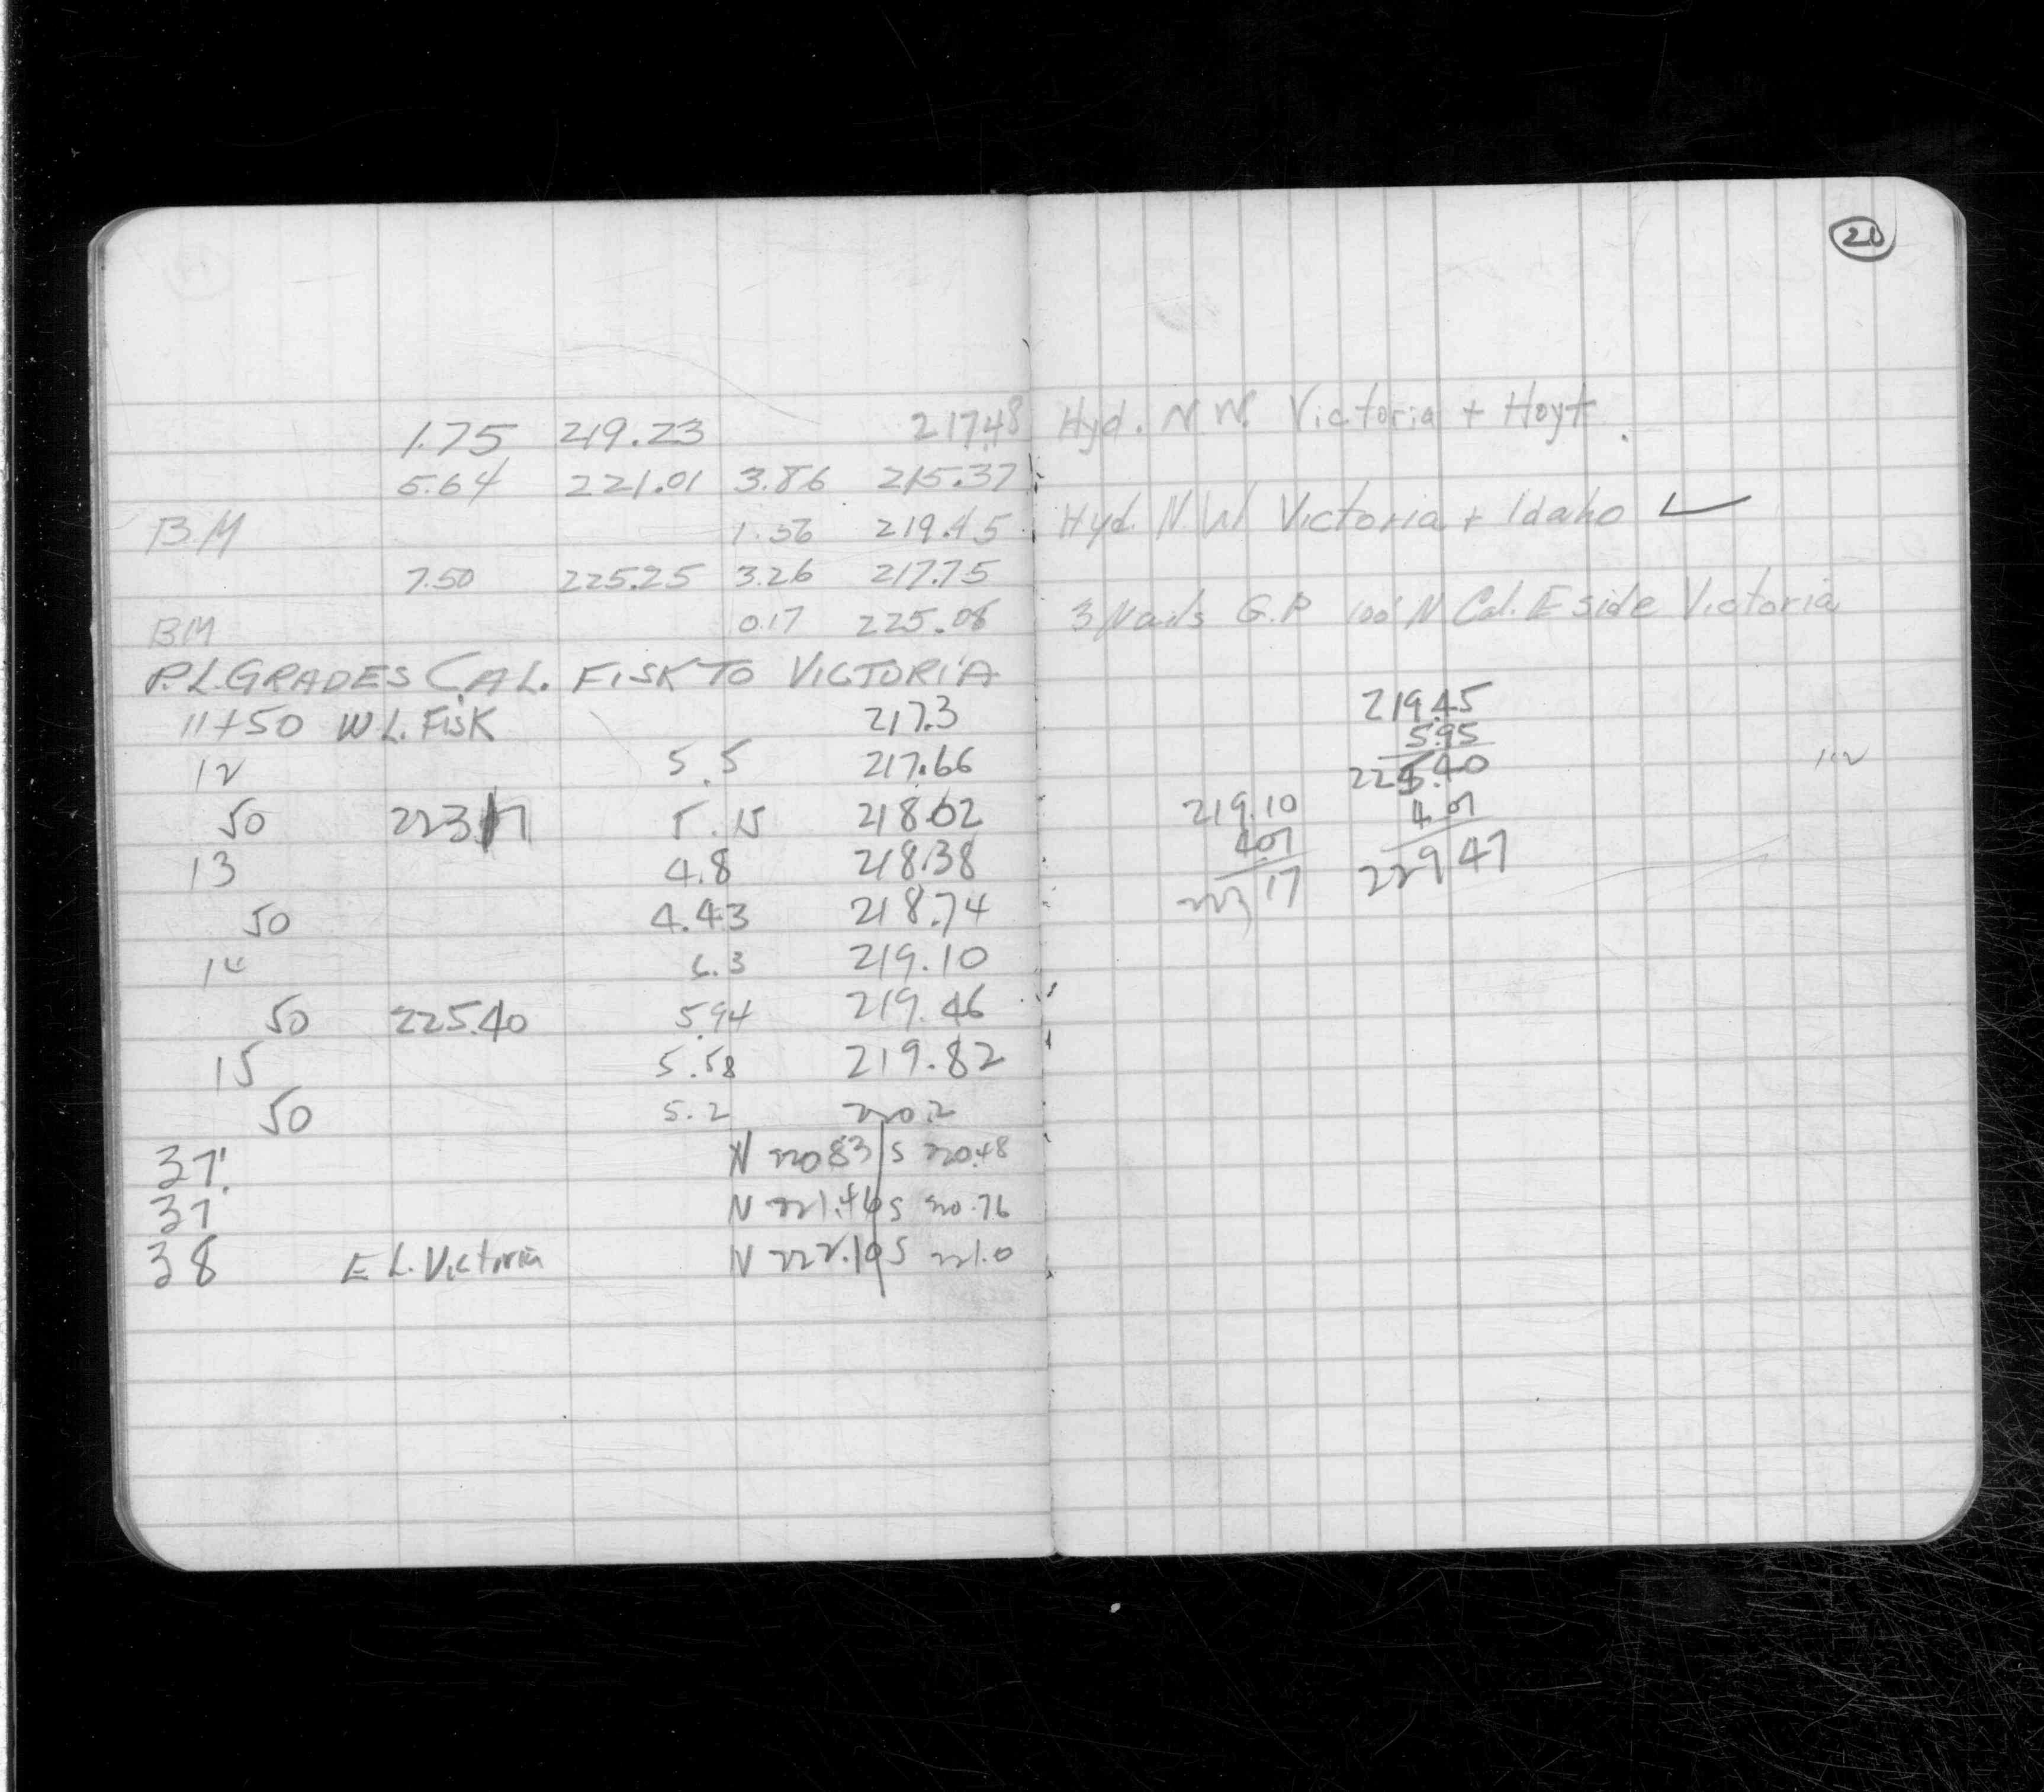 20
1.75 219.23 217.48 Hyd. N.W. Victoria + Hoyt
5.64 221.01 3.86 215.37
B.M 1.56 219.45 Hyd. N.W Victoria + Idaho ✓
7.50 225.25 3.26 217.75
BM 0.17 225.08 3 Nails G.P 100' N Cal. E side Victoria
P.L. GRADES CAL. FISK TO VICTORIA
11+50 W L. FISK 217.3 219.45
5.95
12 5.5 217.66 225.40
50 223.17 5.15 218.02 219.10 4.07
13 4.8 218.38 4.07 229 47
50 4.43 218.74 223 17
14 6.3 219.10
50 225.40 5.94 219.46
15 5.58 219.82
50 5.2 220.2
37' N 220 83 S 220.48
37 N 221.46 S 220.76
38 E L. Victoria N 222.10 S 221.0